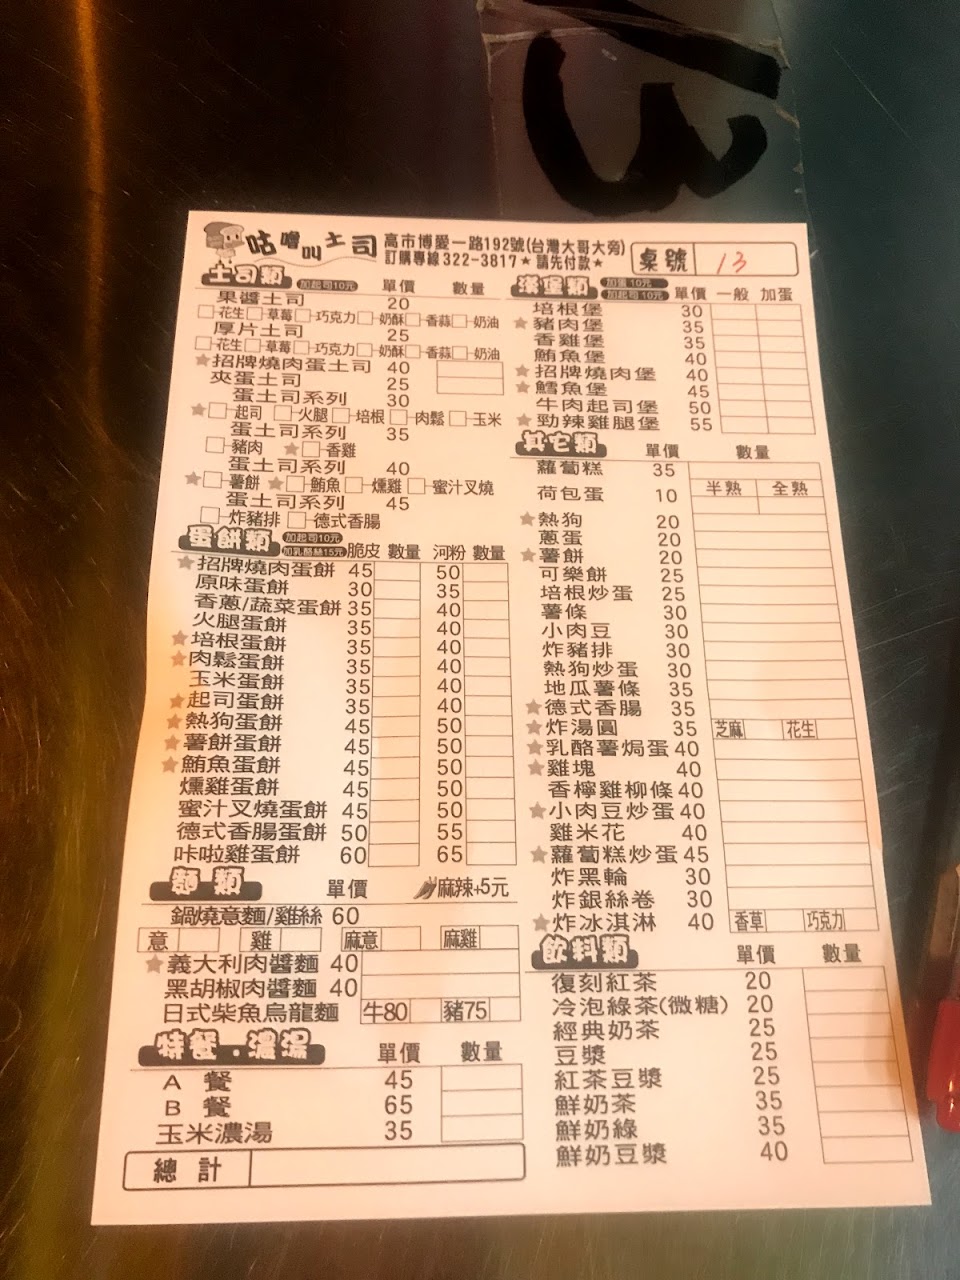 咕嚕叫土司 高市博愛一路192號(台灣大哥大旁)
訂購專線322-3817★請先付款★
桌號 13
土司類 加起司10元 單價 數量
果醬土司 20
花生 草莓 巧克力 奶酥 香蒜 奶油
厚片土司 25
花生 草莓 巧克力 奶酥 香蒜 奶油
★招牌燒肉蛋土司 40
夾蛋土司 25
蛋土司系列 30
★起司 火腿 培根 肉鬆 玉米
蛋土司系列 35
豬肉 ★香雞
蛋土司系列 40
★薯餅 ★鮪魚 燻雞 蜜汁叉燒
蛋土司系列 45
炸豬排 德式香腸
蛋餅類 加起司10元 加乳酪絲15元 脆皮 數量 河粉 數量
★招牌燒肉蛋餅 45 50
原味蛋餅 30 35
香蔥/蔬菜蛋餅 35 40
火腿蛋餅 35 40
★培根蛋餅 35 40
★肉鬆蛋餅 35 40
玉米蛋餅 35 40
★起司蛋餅 35 40
★熱狗蛋餅 45 50
★薯餅蛋餅 45 50
★鮪魚蛋餅 45 50
燻雞蛋餅 45 50
蜜汁叉燒蛋餅 45 50
德式香腸蛋餅 50 55
咔啦雞蛋餅 60 65
麵類 單價 麻辣+5元
鍋燒意麵/雞絲 60
意 雞 麻意 麻雞
★義大利肉醬麵 40
黑胡椒肉醬麵 40
日式柴魚烏龍麵 牛80 豬75
特餐.濃湯 單價 數量
A 餐 45
B 餐 65
玉米濃湯 35
總計
漢堡類 加蛋10元 加起司10元 單價 一般 加蛋
培根堡 30
★豬肉堡 35
香雞堡 35
鮪魚堡 40
★招牌燒肉堡 40
★鱈魚堡 45
牛肉起司堡 50
★勁辣雞腿堡 55
其它類 單價 數量
蘿蔔糕 35
半熟 全熟
荷包蛋 10
★熱狗 20
蔥蛋 20
★薯餅 20
可樂餅 25
培根炒蛋 25
薯條 30
小肉豆 30
炸豬排 30
熱狗炒蛋 30
地瓜薯條 35
★德式香腸 35
★炸湯圓 35 芝麻 花生
★乳酪薯焗蛋 40
★雞塊 40
香檸雞柳條 40
★小肉豆炒蛋 40
雞米花 40
★蘿蔔糕炒蛋 45
炸黑輪 30
炸銀絲卷 30
★炸冰淇淋 40 香草 巧克力
飲料類 單價 數量
復刻紅茶 20
冷泡綠茶(微糖) 20
經典奶茶 25
豆漿 25
紅茶豆漿 25
鮮奶茶 35
鮮奶綠 35
鮮奶豆漿 40